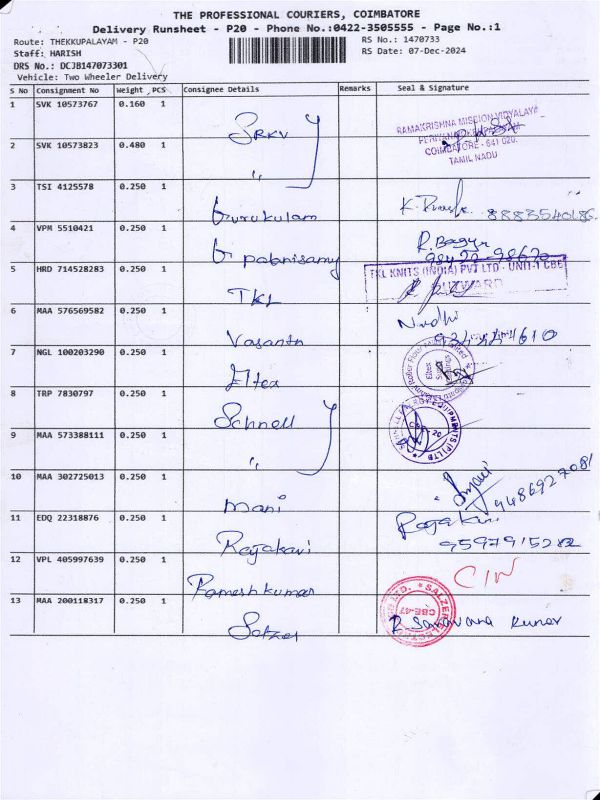 THE PROFESSIONAL COURIERS, COIMBATORE
Delivery Runsheet - P20 - Phone No.:0422-3505555 - Page No.:1
Route: THEKKUPALAYAM - P20 RS No.: 1470733
Staff: HARISH RS Date: 07-Dec-2024
DRS No.: DCJB147073301
Vehicle: Two Wheeler Delivery
S No Consignment No Weight PCS Consignee Details Remarks Seal & Signature
1 SVK 10573767 0.160 1 SRKV
RAMAKRISHNA MISSION VIDYALAYA
COIMBATORE - 641 020.
TAMIL NADU
2 SVK 10573823 0.480 1 "
3 TSI 4125578 0.250 1 Gurukulam 8883540186
4 VPM 5510421 0.250 1 G pabnisamy
5 HRD 714528283 0.250 1 TKL
TKL KNITS (INDIA) PVT LTD - UNIT-1 CBE
6 MAA 576569582 0.250 1 Vasanth
7 NGL 100203290 0.250 1 Eltex
8 TRP 7830797 0.250 1 Schnell
9 MAA 573388111 0.250 1 "
10 MAA 302725013 0.250 1 Mani 9486927081
11 EDQ 22318876 0.250 1 Rajakavi 9597915282
12 VPL 405997639 0.250 1 Rameshkumar
13 MAA 200118317 0.250 1 Salzer R. Saravana Kumar